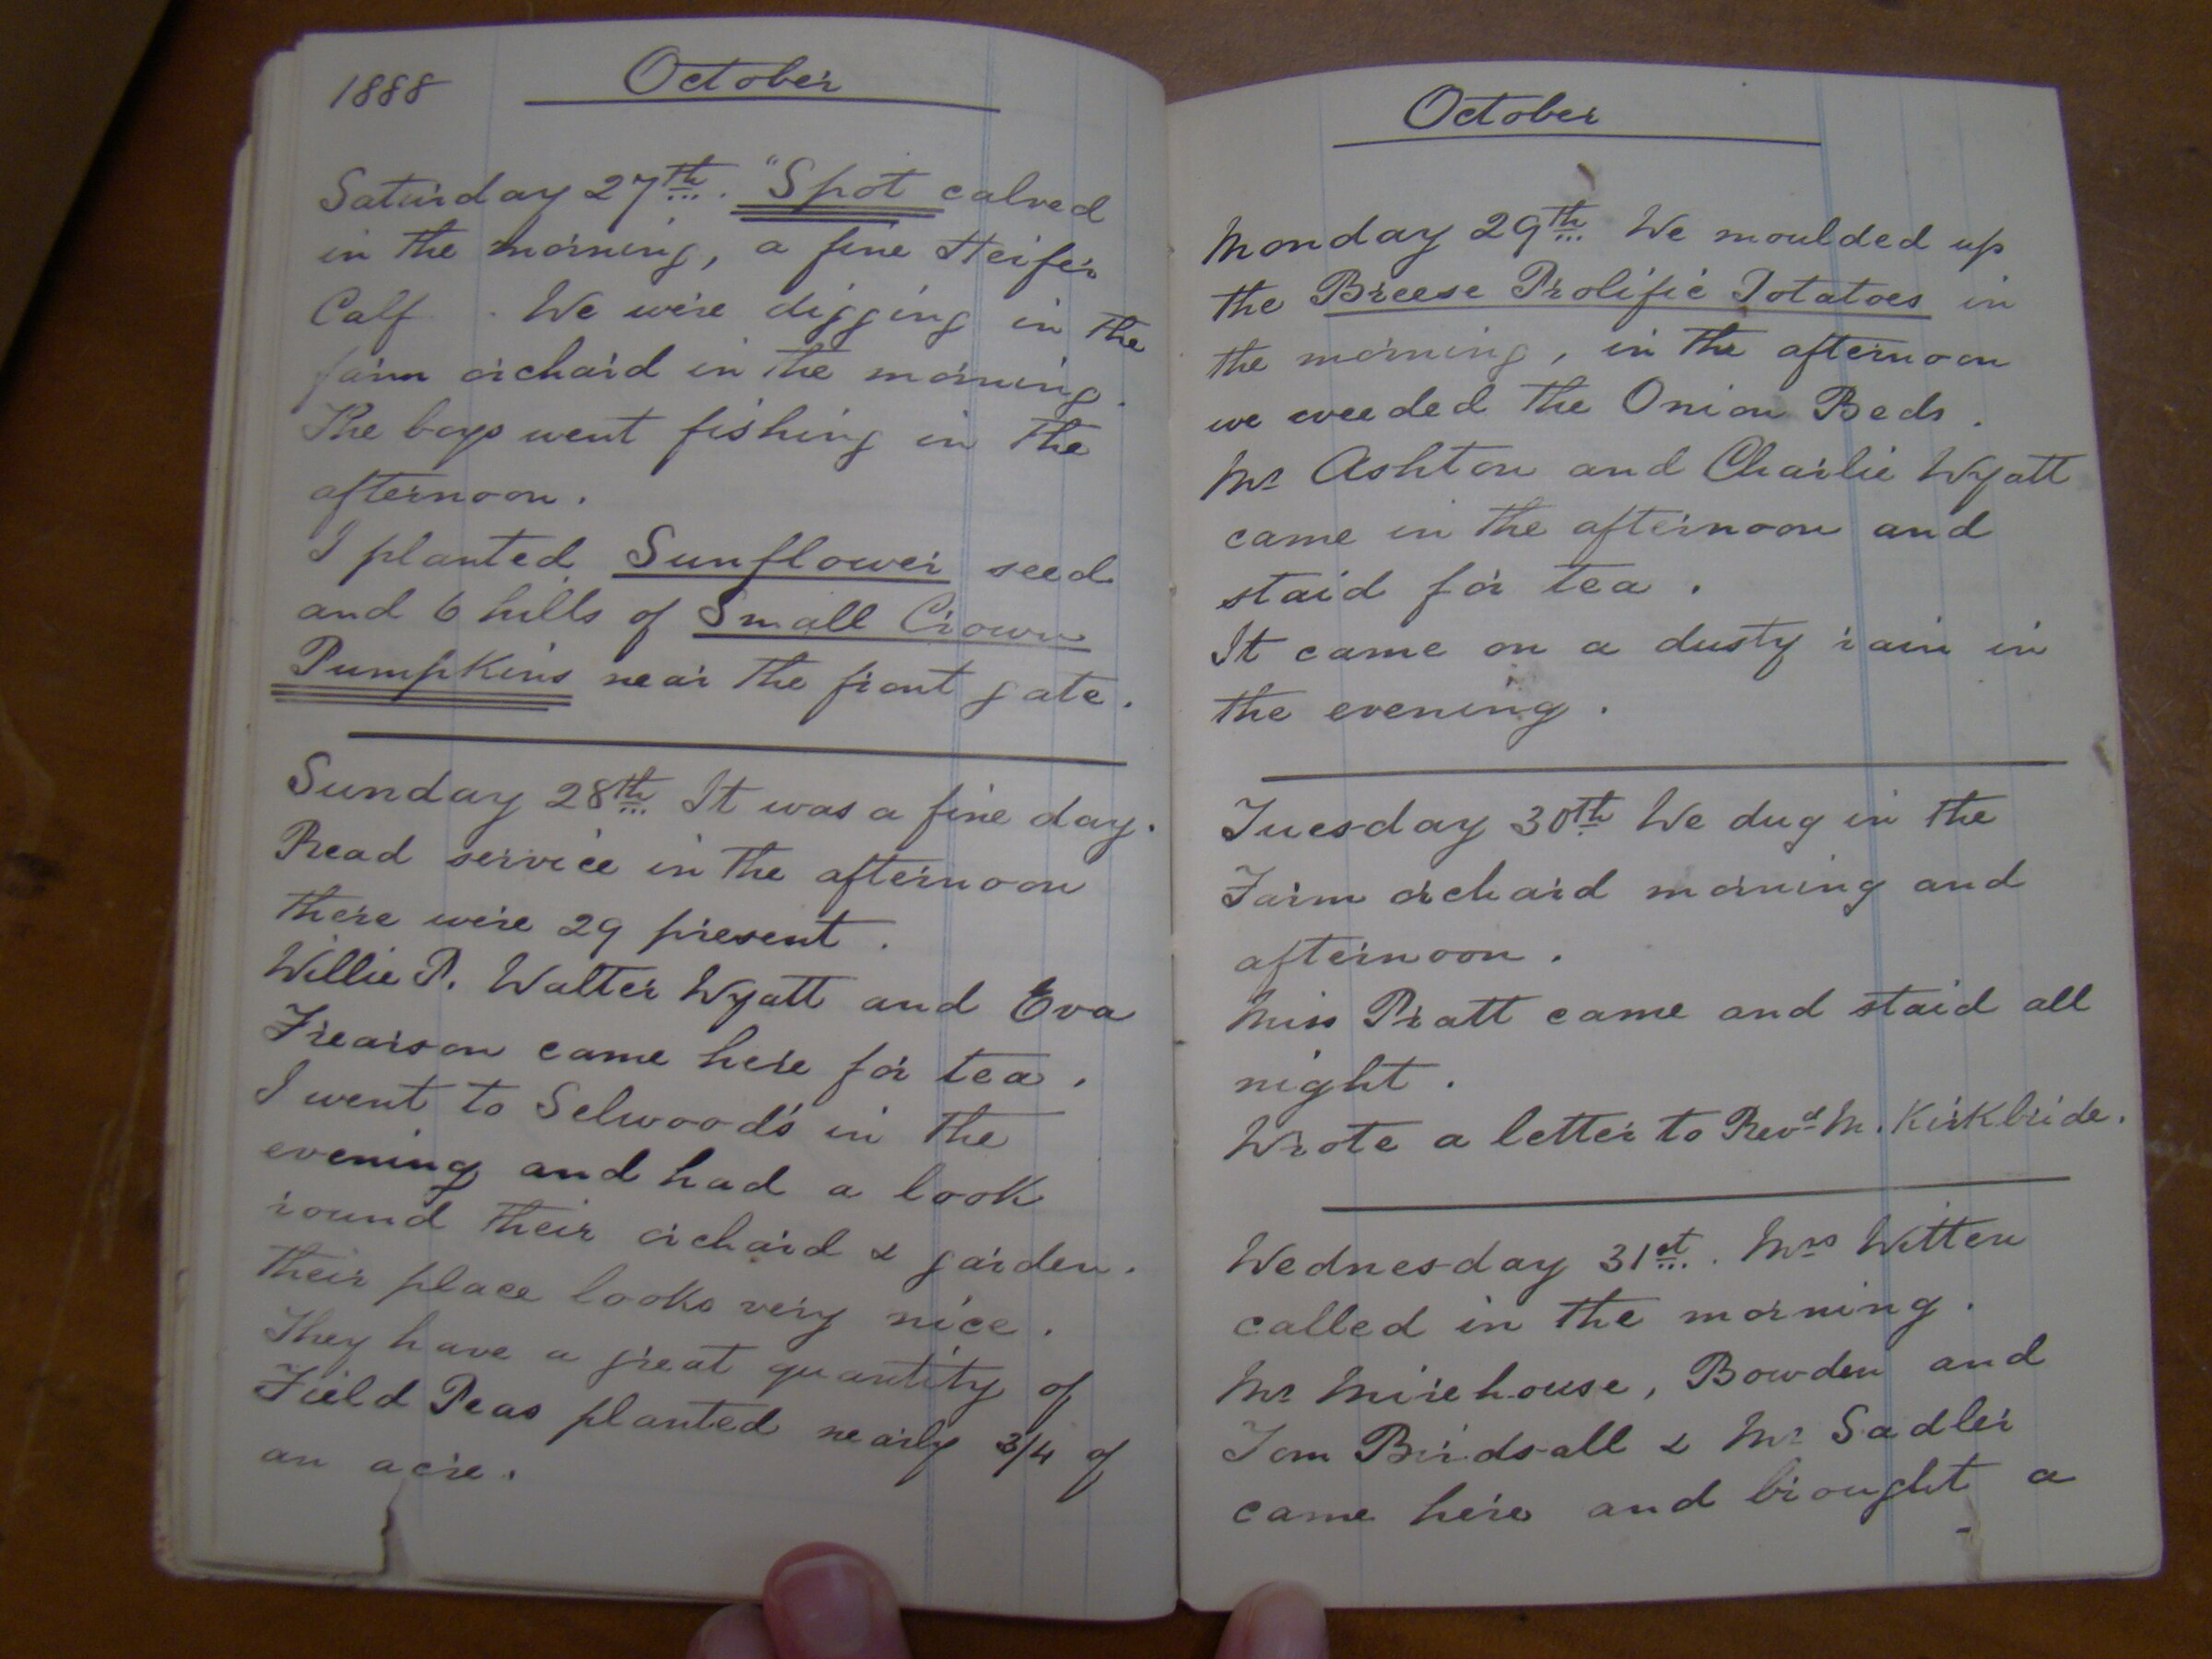 1888 October
Saturday 27th. "Spot calved
in the morning, a fine Heifer
Calf. We were digging in the
farm orchard in the morning.
The boys went fishing in the
afternoon.
I planted Sunflower seed
and 6 hills of Small Crown
Pumpkins near the front gate.
Sunday 28th It was a fine day.
Read service in the afternoon
there were 29 present.
Willie P. Walter Wyatt and Eva
Frearson came here for tea.
I went to Selwood's in the
evening and had a look
round their orchard & garden.
their place looks very nice.
They have a great quantity of
Field Peas planted nearly 3/4 of
an acre.
October
Monday 29th We moulded up
the Breese Prolific Potatoes in
the morning, in the afternoon
we weeded the Onion Beds.
Mr Ashton and Charlie Wyatt
came in the afternoon and
staid for tea.
It came on a dusty rain in
the evening.
Tuesday 30th We dug in the
Farm orchard morning and
afternoon.
Miss Pratt came and staid all
night.
Wrote a letter to Revd M. Kirkbride.
Wednesday 31st. Mrs Witten
called in the morning.
Mr Mirehouse, Bowden and
Tom Birdsall & Mr Sadler
came here and brought a